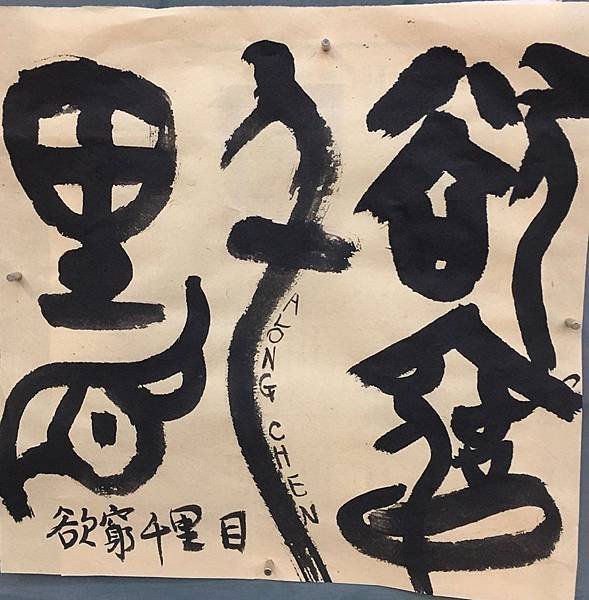 欲窮
千
里目
ALONG CHEN
欲窮千里目